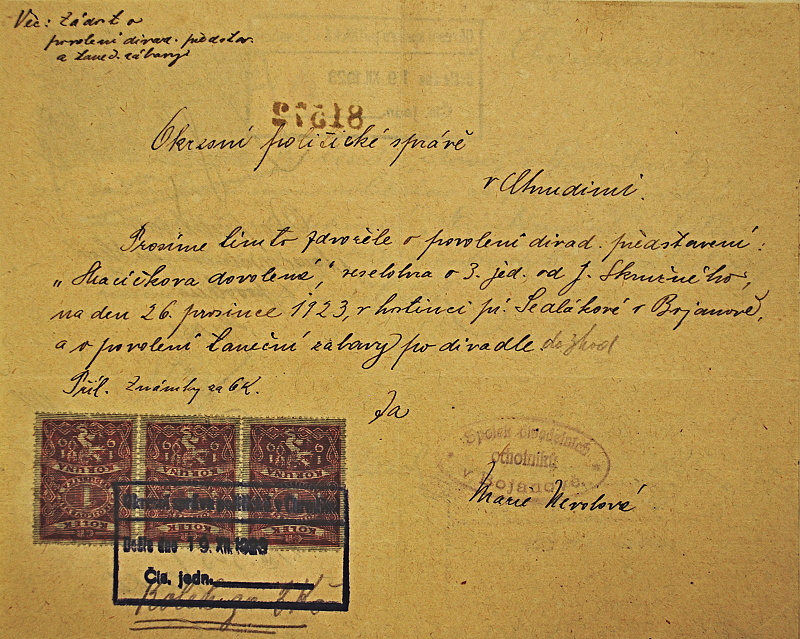 Věc: Žádost o
povolení divad. představ.
a taneč. zábavy
81572
Okresní politické správě
v Chrudimi.
Prosíme tímto zdvořile o povolení divad. představení:
„Kacíčkova dovolená", veselohra o 3. jed. od J. Skružného,
na den 26. prosince 1923, v hostinci pí. Sedlákové v Bojanově,
a o povolení taneční zábavy po divadle. do
Příl. Známky za 6 K.
Za
Spolek divadelních
ochotníků
v Bojanově
Marie Nevolová
1919 1919 1919
KORUNA KORUNA KORUNA
1 1 1
KOLEK KOLEK KOLEK
Došlo dne 19. XII. 1923
Čís. jedn.